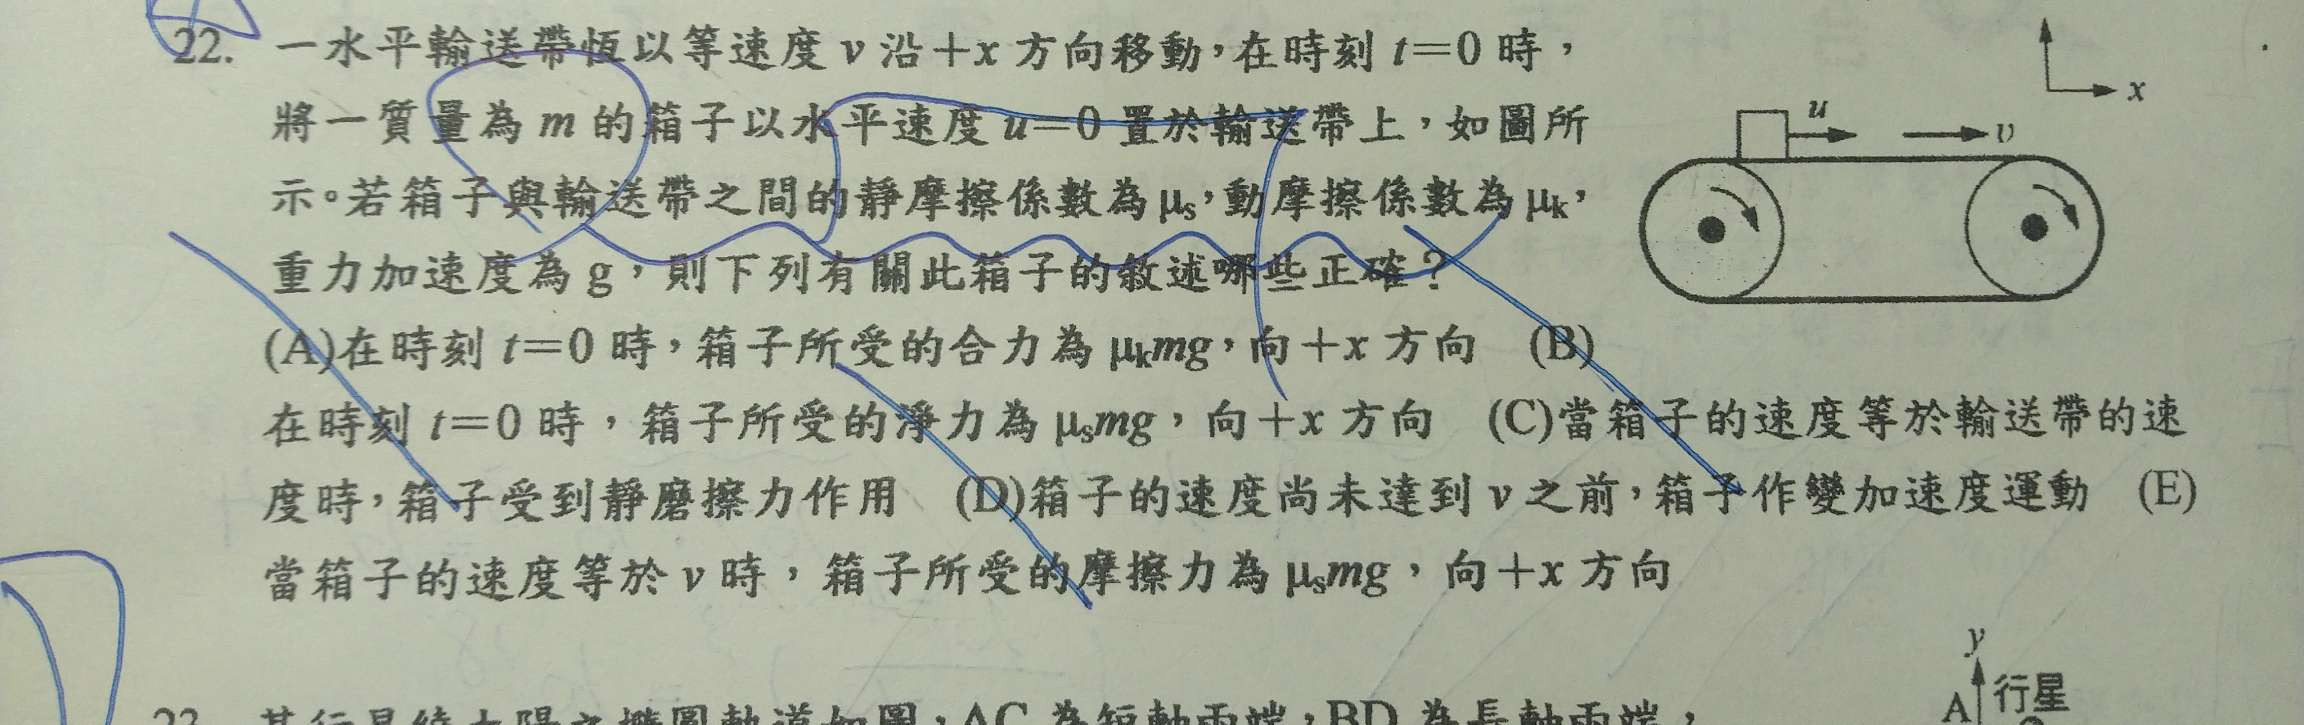 22. 一水平輸送帶恆以等速度 v 沿+x 方向移動,在時刻 t=0 時,
將一質量為 m 的箱子以水平速度 u=0 置於輸送帶上,如圖所
示。若箱子與輸送帶之間的靜摩擦係數為 μs,動摩擦係數為 μk,
重力加速度為 g,則下列有關此箱子的敘述哪些正確?
(A)在時刻 t=0 時,箱子所受的合力為 μkmg,向+x 方向 (B)
在時刻 t=0 時,箱子所受的淨力為 μsmg,向+x 方向 (C)當箱子的速度等於輸送帶的速
度時,箱子受到靜磨擦力作用 (D)箱子的速度尚未達到 v 之前,箱子作變加速度運動 (E)
當箱子的速度等於 v 時,箱子所受的摩擦力為 μsmg,向+x 方向
x
u
v
y
A 行星
23. 某行星繞太陽之橢圓軌道如圖,AC 為短軸兩端,BD 為長軸兩端,